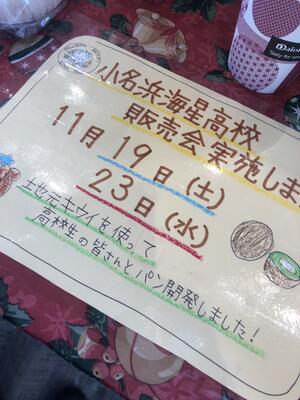 小名浜海星高校
販売会実施しま
11月19日(土)
23日(水)
地元キウイを使って
高校生の皆さんとパン開発しました!